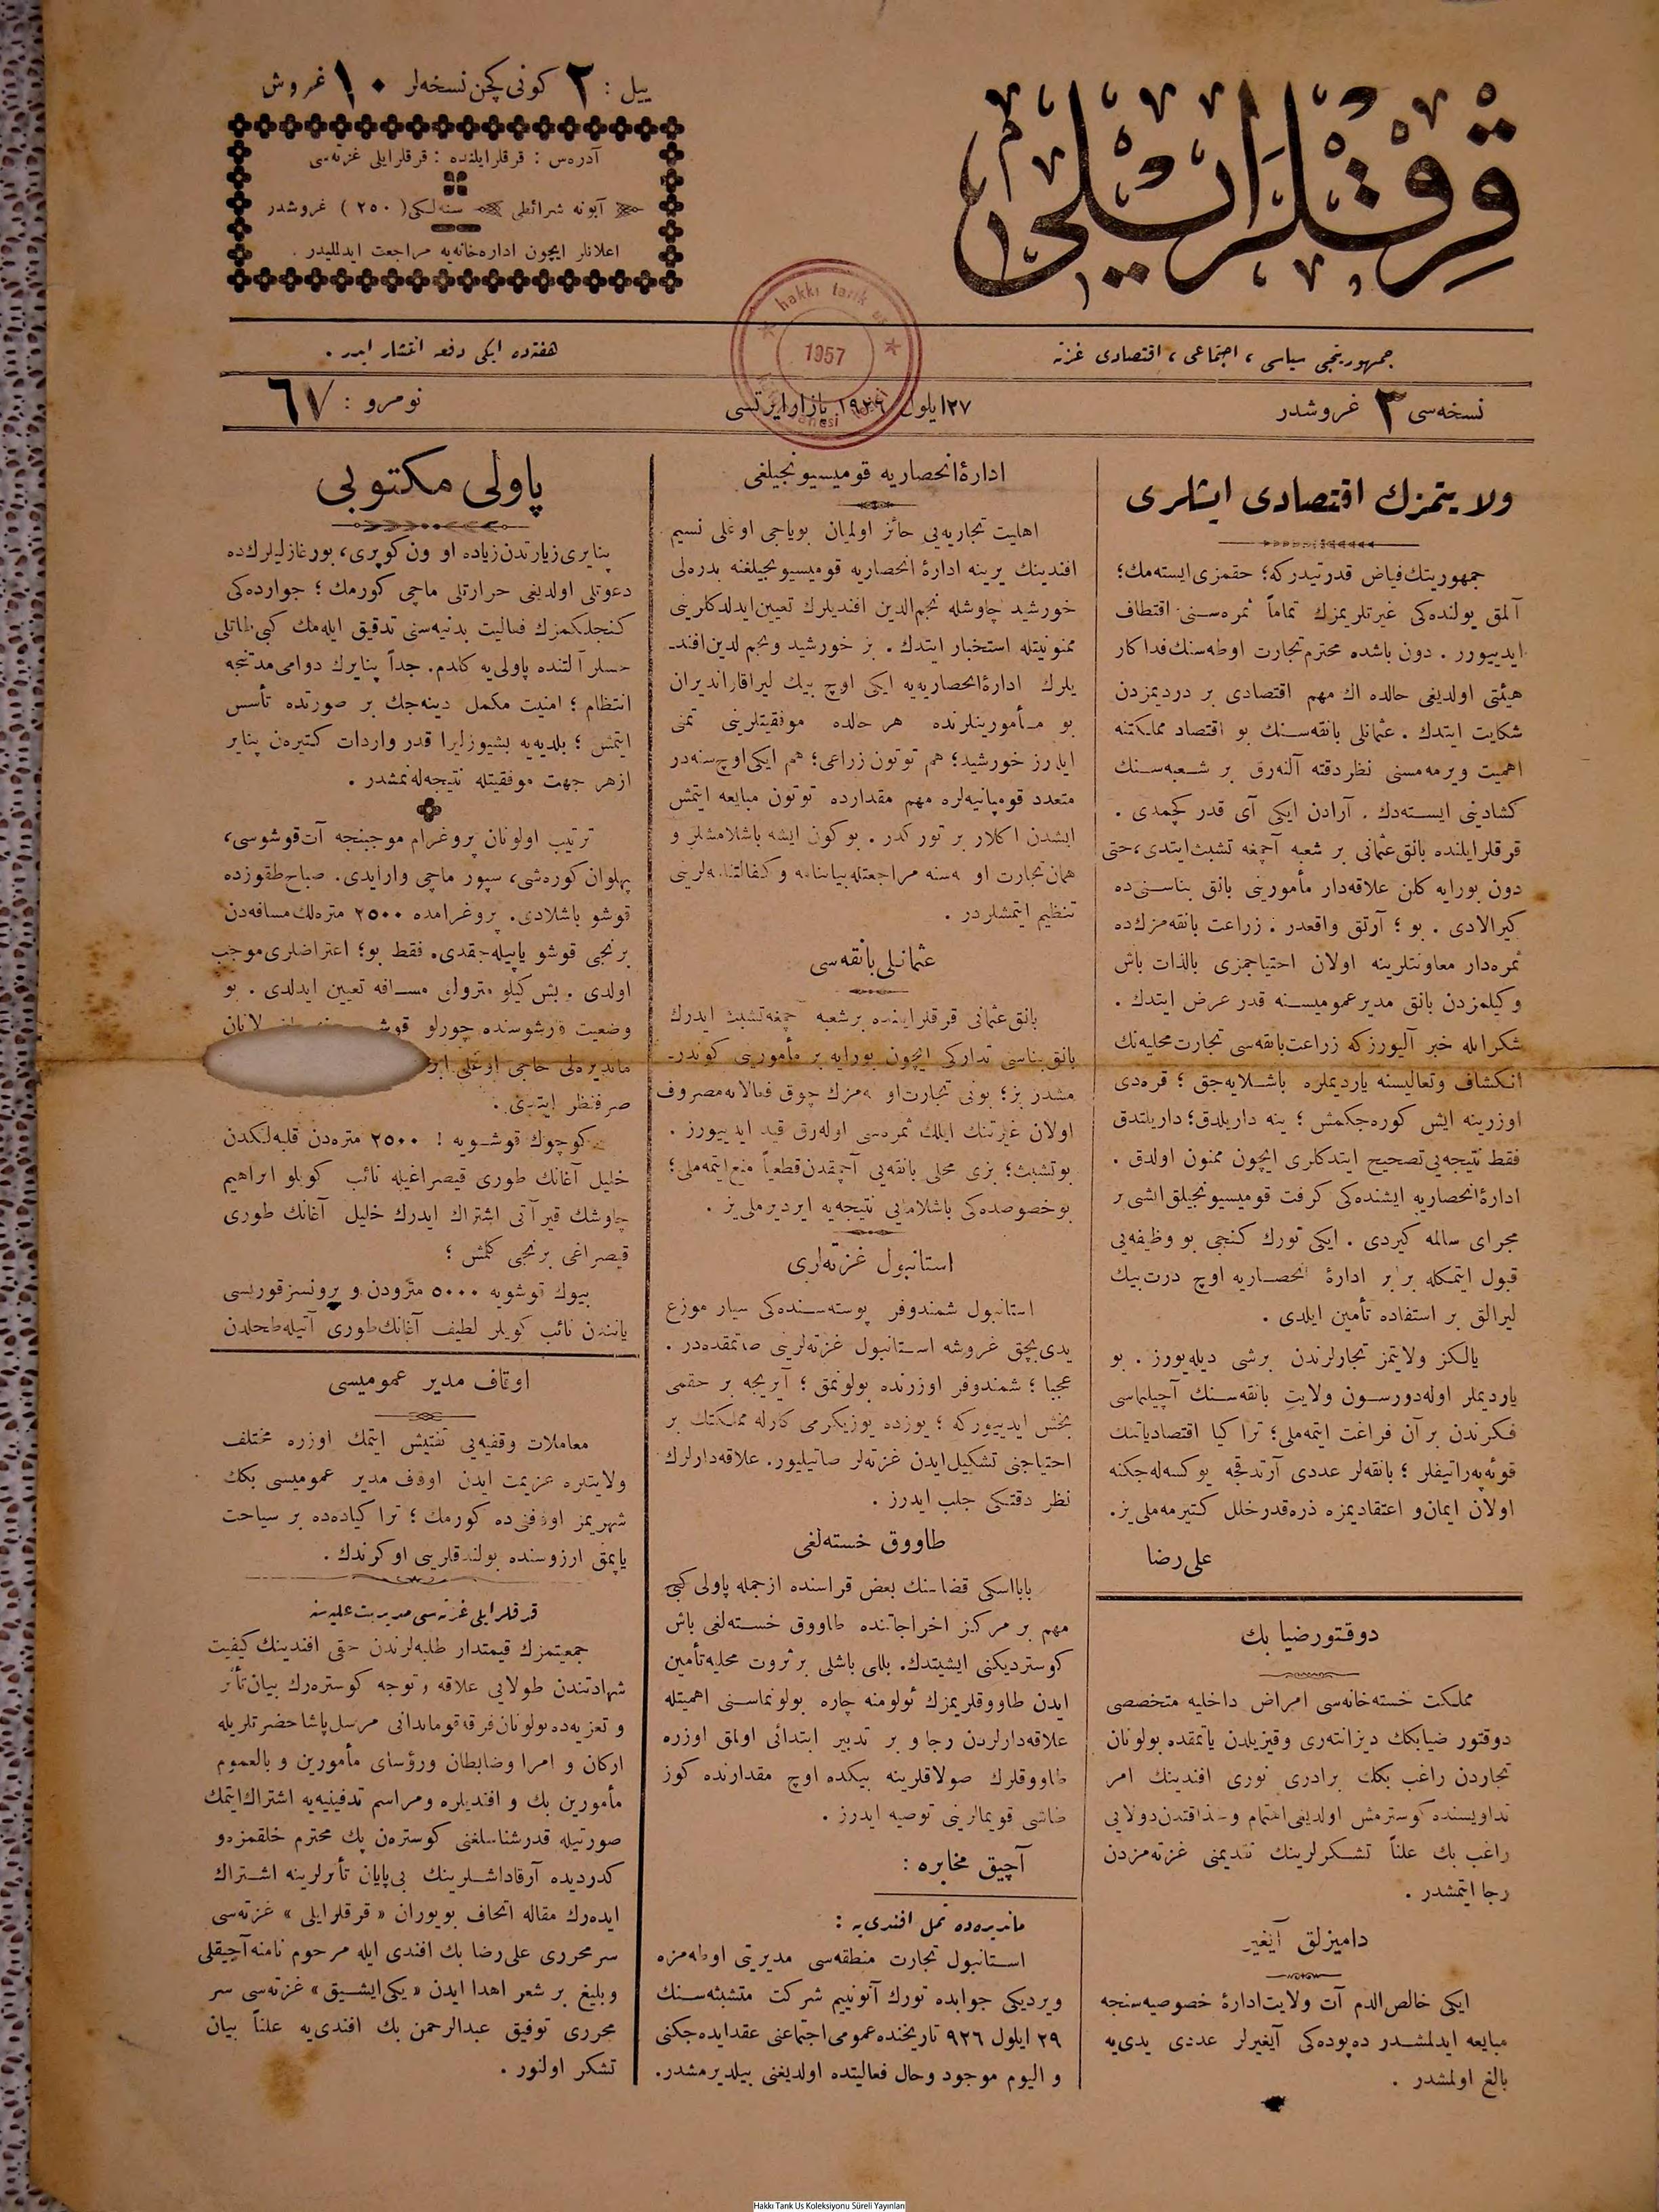 ييل : ٢ كونى كچن نسخه‌لر ١٠ غروش
آدره‌س : قرقلرايلنده : قرقلرايلى غزته‌سى
آبونه شرائطى سنه‌لكى ( ٢٥٠ ) غروشدر
اعلانلر ايچون اداره‌خانه‌يه مراجعت ايدلليدر .
قرقلرايلى
hakkı tarık us
1957
جمهوريتجى سياسى ، اجتماعى ، اقتصادى غزته
هفته‌ده ايكى دفعه انتشار ايدر .
نسخه‌سى ٣ غروشدر
٢٧ ايلول ١٩٢٦ بازارايرتسى
نومرو : ٦٧
ولايتمزك اقتصادى ايشلرى
جمهوريتك فياض قدرتيدركه؛ حقمزى ايسته‌مك؛
آلمق يولنده‌كى غيرتلريمزك تماماً ثمره‌سنى اقتطاف
ايدييورر . دون باشده محترم تجارت اوطه‌سنك فداكار
هيئتى اولديغى حالده اك مهم اقتصادى بر درديمزدن
شكايت ايتدك . عثمانلى بانقه‌سنك بو اقتصاد مملكتنه
اهميت ويرمه‌مسنى نظر دقته آله‌رق بر شعبه‌سنك
كشادينى ايسته‌دك . آرادن ايكى آى قدر كچمدى .
قرقلرايلنده بانق عثمانى بر شعبه آچمغه تشبث ايتدى، حتى
دون بورايه كلن علاقه‌دار مأمورينى بانق بناسنى ده
كيرالادى . بو ؛ آرتق واقعدر . زراعت بانقه‌مزك ده
ثمره‌دار معاونتلرينه اولان احتياجمزى بالذات باش
وكيلمزدن بانق مدير عموميسنه قدر عرض ايتدك .
شكرله خبر آليورزكه زراعت بانقه‌سى تجارت محليه‌نك
انكشاف وتعاليسنه يارديملره باشلايه‌جق ؛ قره‌دى
اوزرينه ايش كوره‌جكمش ؛ ينه داريلدق؛ داريلدق
فقط نتيجه‌يى تصحيح ايتدكلرى ايچون ممنون اولدق .
ادارهٔ انحصاريه ايشنده‌كى كرفت قوميسيونجيلق ايشى بر
مجراى سالمه كيردى . ايكى تورك كنجى بو وظيفه‌يى
قبول ايتمكله برابر ادارهٔ انحصاريه اوچ درت بيك
ليرالق بر استفاده تأمين ايلدى .
يالكز ولايتمز تجارلرندن برشى ديله‌يورز . بو
يارديملر اوله‌دورسون ولايت بانقه‌سنك آچيلماسى
فكرندن بر آن فراغت ايتمه‌ملى؛ تراكيا اقتصادياتنك
قوئه‌په‌راتيفلر ؛ بانقه‌لر عددى آرتدقجه يوكسله‌جكنه
اولان ايمان و اعتقاديمزه ذره‌قدر خلل كتيرمه‌ملى‌يز.
على رضا
دوقتور ضيا بك
مملكت خسته‌خانه‌سى امراض داخليه متخصصى
دوقتور ضيابكك ديزانته‌رى وقيزيلدن ياتمقده بولونان
تجاردن راغب بكك برادرى نورى افندينك امر
تداويسنده كوسترمش اولديغى اهتمام وحذاقتدن دولايى
راغب بك علناً تشكرلرينك تقديمنى غزته‌مزدن
رجا ايتمشدر .
داميزلق آيغير
ايكى خالص الدم آت ولايت ادارهٔ خصوصيه‌سنجه
مبايعه ايدلمشدر ده‌پوده‌كى آيغيرلر عددى يدى‌يه
بالغ اولمشدر .
ادارهٔ انحصاريه قوميسيونجيلغى
اهليت تجاريه‌يى حائز اولميان بوياجى اوغلى نسيم
افندينك يرينه ادارهٔ انحصاريه قوميسيونجيلغنه بدره‌لى
خورشيد چاوشله نجم‌الدين افنديلرك تعيين ايدلدكلرينى
ممنونيتله استخبار ايتدك . بز خورشيد ونجم لدين افند-
يلرك ادارهٔ انحصاريه‌يه ايكى اوچ بيك ليراقازانديران
بو مأموريتلرنده هر حالده موفقيتلرينى تمنى
ايلرز خورشيد؛ هم توتون زراعى؛ هم ايكى اوچ سنه‌در
متعدد قومپانيه‌لره مهم مقدارده توتون مبايعه ايتمش
ايشدن اكلار بر توركدر . بوكون ايشه باشلامشلر و
همان تجارت اوطه‌سنه مراجعتله بياننامه و كفالتنامه‌لرينى
تنظيم ايتمشلردر .
عثمانلى بانقه‌سى
بانق عثمانى قرقلرايلنده برشعبه آچمغه تشبث ايدرك
بانق بناسى تداركى ايچون بورايه بر مأمورينى كوندر-
مشدر بز؛ بونى تجارت اوطه‌مزك چوق فعالانه مصروف
اولان غيرتنك ايلك ثمره‌سى اوله‌رق قيد ايدييورز .
بوتشبث؛ بزى محلى بانقه‌يى آچمقدن قطعياً منع ايتمه‌ملى؛
بو خصوصده‌كى باشلامايى نتيجه‌يه ايرديرملى‌يز .
استانبول غزته‌لرى
استانبول شمندوفر پوسته‌سنده‌كى سيار موزع
يدى بچق غروشه استانبول غزته‌لرينى صاتمقده‌در .
عجبا ؛ شمندوفر اوزرنده بولونمق ؛ آيريجه بر حقمى
بخش ايدييوركه ؛ يوزده يوزيكرمى كارله مملكتك بر
احتياجنى تشكيل ايدن غزته‌لر صاتيليور. علاقه‌دارلرك
نظر دقتنى جلب ايدرز .
طاووق خسته‌لغى
بابااسكى قضاسنك بعض قراسنده ازجمله پاولى كبى
مهم بر مركز اخراجاتنده طاووق خسته‌لغى باش
كوسترديكنى ايشيتدك. بللى باشلى بر ثروت محليه تأمين
ايدن طاووقلريمزك ئولومنه چاره بولونماسنى اهميتله
علاقه‌دارلردن رجا و بر تدبير ابتدائى اولمق اوزره
طاووقلرك صولاقلرينه بيكده اوچ مقدارنده كوز
طاشى قويمالرينى توصيه ايدرز .
آچيق مخابره :
مانديره‌ده تمل افندى‌يه :
استانبول تجارت منطقه‌سى مديريتى اوطه‌مزه
ويرديكى جوابده تورك آنونييم شركت متشبثه‌سنك
٢٩ ايلول ٩٢٦ تاريخنده عمومى اجتماعنى عقدايده‌جكنى
و اليوم موجود وحال فعاليتده اولديغنى بيلديرمشدر.
پاولى مكتوبى
پنايرى زيارتدن زياده او ون كوپرى، بورغازليلرك ده
دعوتلى اولديغى حرارتلى ماچى كورمك ؛ جوارده‌كى
كنجلكمزك فعاليت بدنيه‌سنى تدقيق ايله‌مك كبى طاتلى
حسلر آلتنده پاولى‌يه كلدم. جداً پنايرك دوامى مدتنجه
انتظام ؛ امنيت مكمل دينه‌جك بر صورتده تأسس
ايتمش ؛ بلديه‌يه بشيوزليرا قدر واردات كتيره‌ن پناير
ازهر جهت موفقيتله نتيجه‌لنمشدر .
ترتيب اولونان پروغرام موجبنجه آت قوشوسى،
پهلوان كوره‌شى، سپور ماچى وارايدى. صباح طقوزده
قوشو باشلادى. پروغرامده ٢٥٠٠ متره‌لك مسافه‌دن
برنجى قوشو ياپيله‌جقدى. فقط بو؛ اعتراضلرى موجب
اولدى . بش كيلو مترولق مسافه تعيين ايدلدى . بو
وضعيت قارشوسنده چورلو
مانديره‌لى حاجى اوغلى
صرفنظر ايتدى .
كوچوك قوشويه ! ٢٥٠٠ متره‌دن قلبه‌لكدن
خليل آغانك طورى قيصراغيله نائب كويلو ابراهيم
چاوشك قير آتى اشتراك ايدرك خليل آغانك طورى
قيصراغى برنجى كلمش ؛
بيوك قوشويه ٥٠٠٠ مترودن و پرونسز قوريسى
ياننه‌ن نائب كويلر لطيف آغانك طورى آتيله طحلدن
اوقاف مدير عموميسى
معاملات وقفيه‌يى تفتيش ايتمك اوزره مختلف
ولايتلره عزيمت ايدن اوقاف مدير عموميسى بكك
شهريمز اوقافنى ده كورمك ؛ تراكياده‌ده بر سياحت
ياپمق ارزوسنده بولندقلرينى اوكرندك .
قرقلرايلى غزته‌سى مديريت عليه‌سنه
جمعيتمزك قيمتدار طلبه‌لرندن حقى افندينك كيفيت
شهادتندن طولايى علاقه و توجه كوستره‌رك بيان تأثر
و تعزيه‌ده بولونان فرقه قوماندانى مرسل پاشا حضرتلريله
اركان و امرا وضابطان ورؤساى مأمورين و بالعموم
مأمورين بك و افنديلره ومراسم تدفينيه‌يه اشتراك ايتمك
صورتيله قدرشناسلغنى كوستره‌ن پك محترم خلقمزه‌و
كدرديده آرقاداشلرينك بى‌پايان تأثرلرينه اشتراك
ايده‌رك مقاله اتحاف بويوران « قرقلرايلى » غزته‌سى
سرمحررى على رضا بك افندى ايله مرحوم نامنه آجيقلى
وبليغ بر شعر اهدا ايدن « يكى ايشيق » غزته‌سى سر
محررى توفيق عبدالرحمن بك افندى‌يه علناً بيان
تشكر اولنور .
Hakkı Tarık Us Koleksiyonu Süreli Yayınları